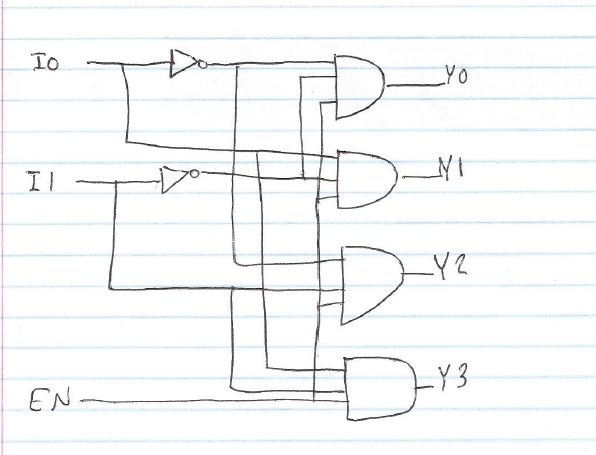 I0
Y0
I1
Y1
Y2
Y3
EN